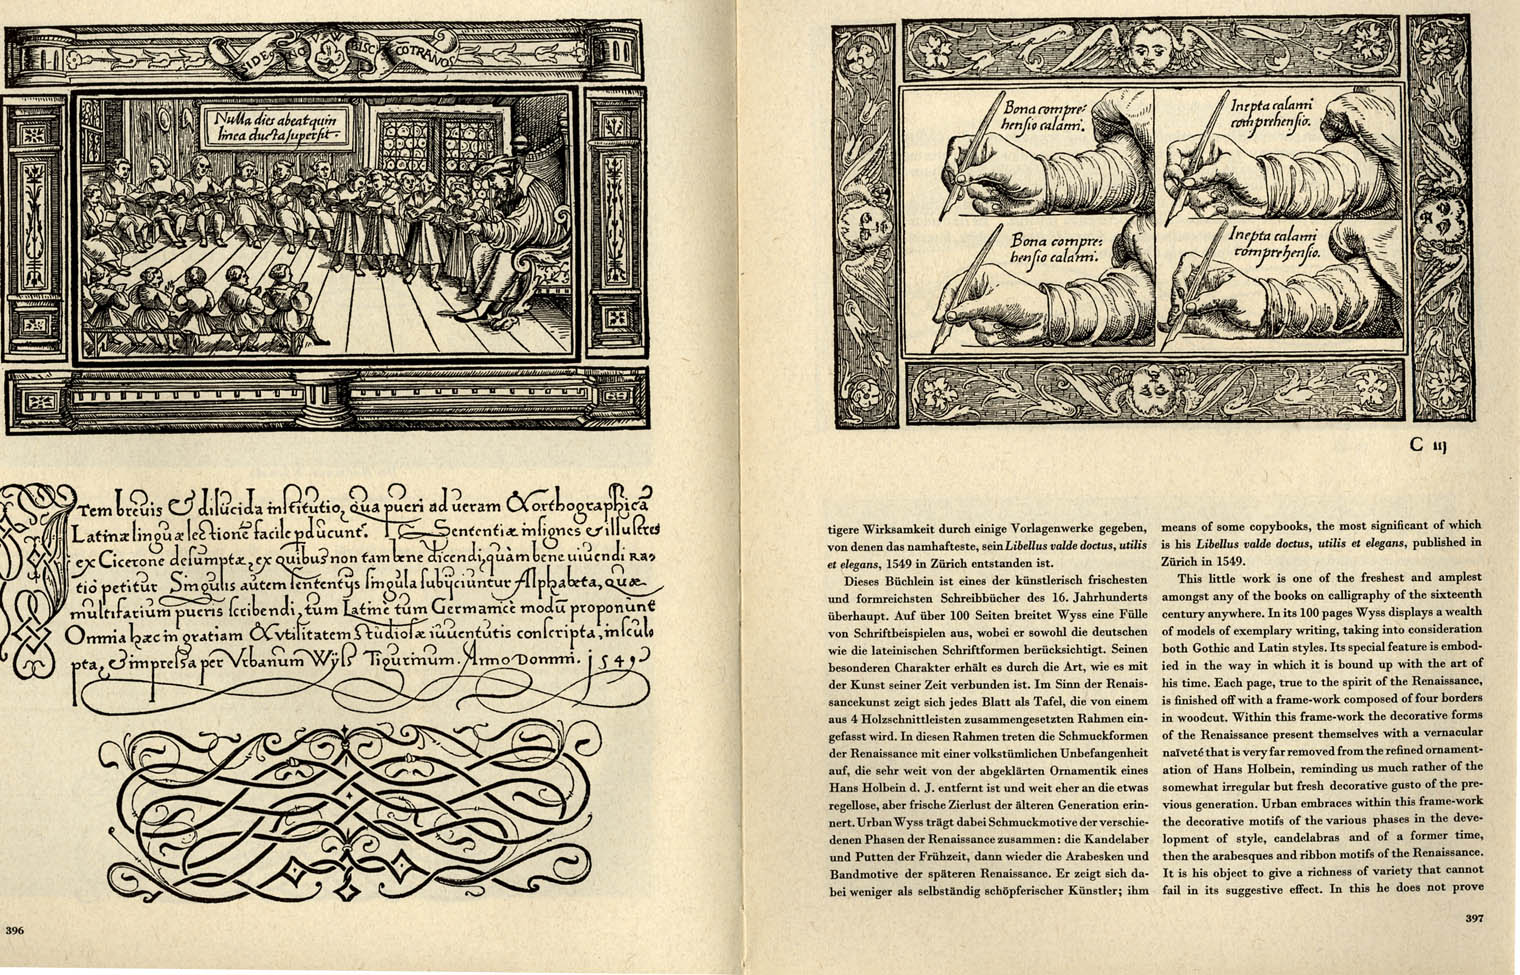 Nulla dies abeat quin
linea ducta superſit.
Tem breuis & dilucida inſtitutio, qua pueri ad ueram & orthographicã
Latinæ linguæ lectionẽ facile pducunt. Sententiæ inſignes & illuſtres
ex Cicerone deſumptæ, ex quibus non tam bene dicendi, quàm bene uiuendi ra-
tio petitur. Singulis autem ſententijs ſingula ſubijciuntur Alphabeta, quæ
multifarium pueris ſcribendi, tum Latine tum Germanice modũ proponunt
Omnia hæc in gratiam & vtilitatem Studioſæ iuuentutis conſcripta, inſculp
pta, & impreſſa per Vrbanum Wyſſ Tigurinum. Anno Domini. 1549
396
Bona compre-
henſio calami.
Inepta calami
comprehenſio.
Bona compre:
henſio calami.
Inepta calami
comprehenſio.
C iij
tigere Wirksamkeit durch einige Vorlagenwerke gegeben,
von denen das namhafteste, sein Libellus valde doctus, utilis
et elegans, 1549 in Zürich entstanden ist.
Dieses Büchlein ist eines der künstlerisch frischesten
und formreichsten Schreibbücher des 16. Jahrhunderts
überhaupt. Auf über 100 Seiten breitet Wyss eine Fülle
von Schriftbeispielen aus, wobei er sowohl die deutschen
wie die lateinischen Schriftformen berücksichtigt. Seinen
besonderen Charakter erhält es durch die Art, wie es mit
der Kunst seiner Zeit verbunden ist. Im Sinn der Renais-
sancekunst zeigt sich jedes Blatt als Tafel, die von einem
aus 4 Holzschnittleisten zusammengesetzten Rahmen ein-
gefasst wird. In diesen Rahmen treten die Schmuckformen
der Renaissance mit einer volkstümlichen Unbefangenheit
auf, die sehr weit von der abgeklärten Ornamentik eines
Hans Holbein d. J. entfernt ist und weit eher an die etwas
regellose, aber frische Zierlust der älteren Generation erin-
nert. Urban Wyss trägt dabei Schmuckmotive der verschie-
denen Phasen der Renaissance zusammen: die Kandelaber
und Putten der Frühzeit, dann wieder die Arabesken und
Bandmotive der späteren Renaissance. Er zeigt sich da-
bei weniger als selbständig schöpferischer Künstler; ihm
means of some copybooks, the most significant of which
is his Libellus valde doctus, utilis et elegans, published in
Zürich in 1549.
This little work is one of the freshest and amplest
amongst any of the books on calligraphy of the sixteenth
century anywhere. In its 100 pages Wyss displays a wealth
of models of exemplary writing, taking into consideration
both Gothic and Latin styles. Its special feature is embod-
ied in the way in which it is bound up with the art of
his time. Each page, true to the spirit of the Renaissance,
is finished off with a frame-work composed of four borders
in woodcut. Within this frame-work the decorative forms
of the Renaissance present themselves with a vernacular
naïveté that is very far removed from the refined ornament-
ation of Hans Holbein, reminding us much rather of the
somewhat irregular but fresh decorative gusto of the pre-
vious generation. Urban embraces within this frame-work
the decorative motifs of the various phases in the deve-
lopment of style, candelabras and of a former time,
then the arabesques and ribbon motifs of the Renaissance.
It is his object to give a richness of variety that cannot
fail in its suggestive effect. In this he does not prove
397